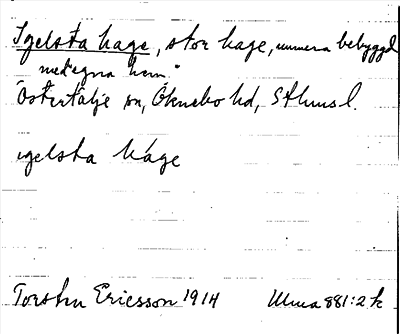 Igelsta hage, stor hage, numera bebyggd
med "egna hem."
Östertälje sn, Öknebo hd, Sthms l.
igelsta háge
Torsten Ericsson 1914 Ulma 881:2 k